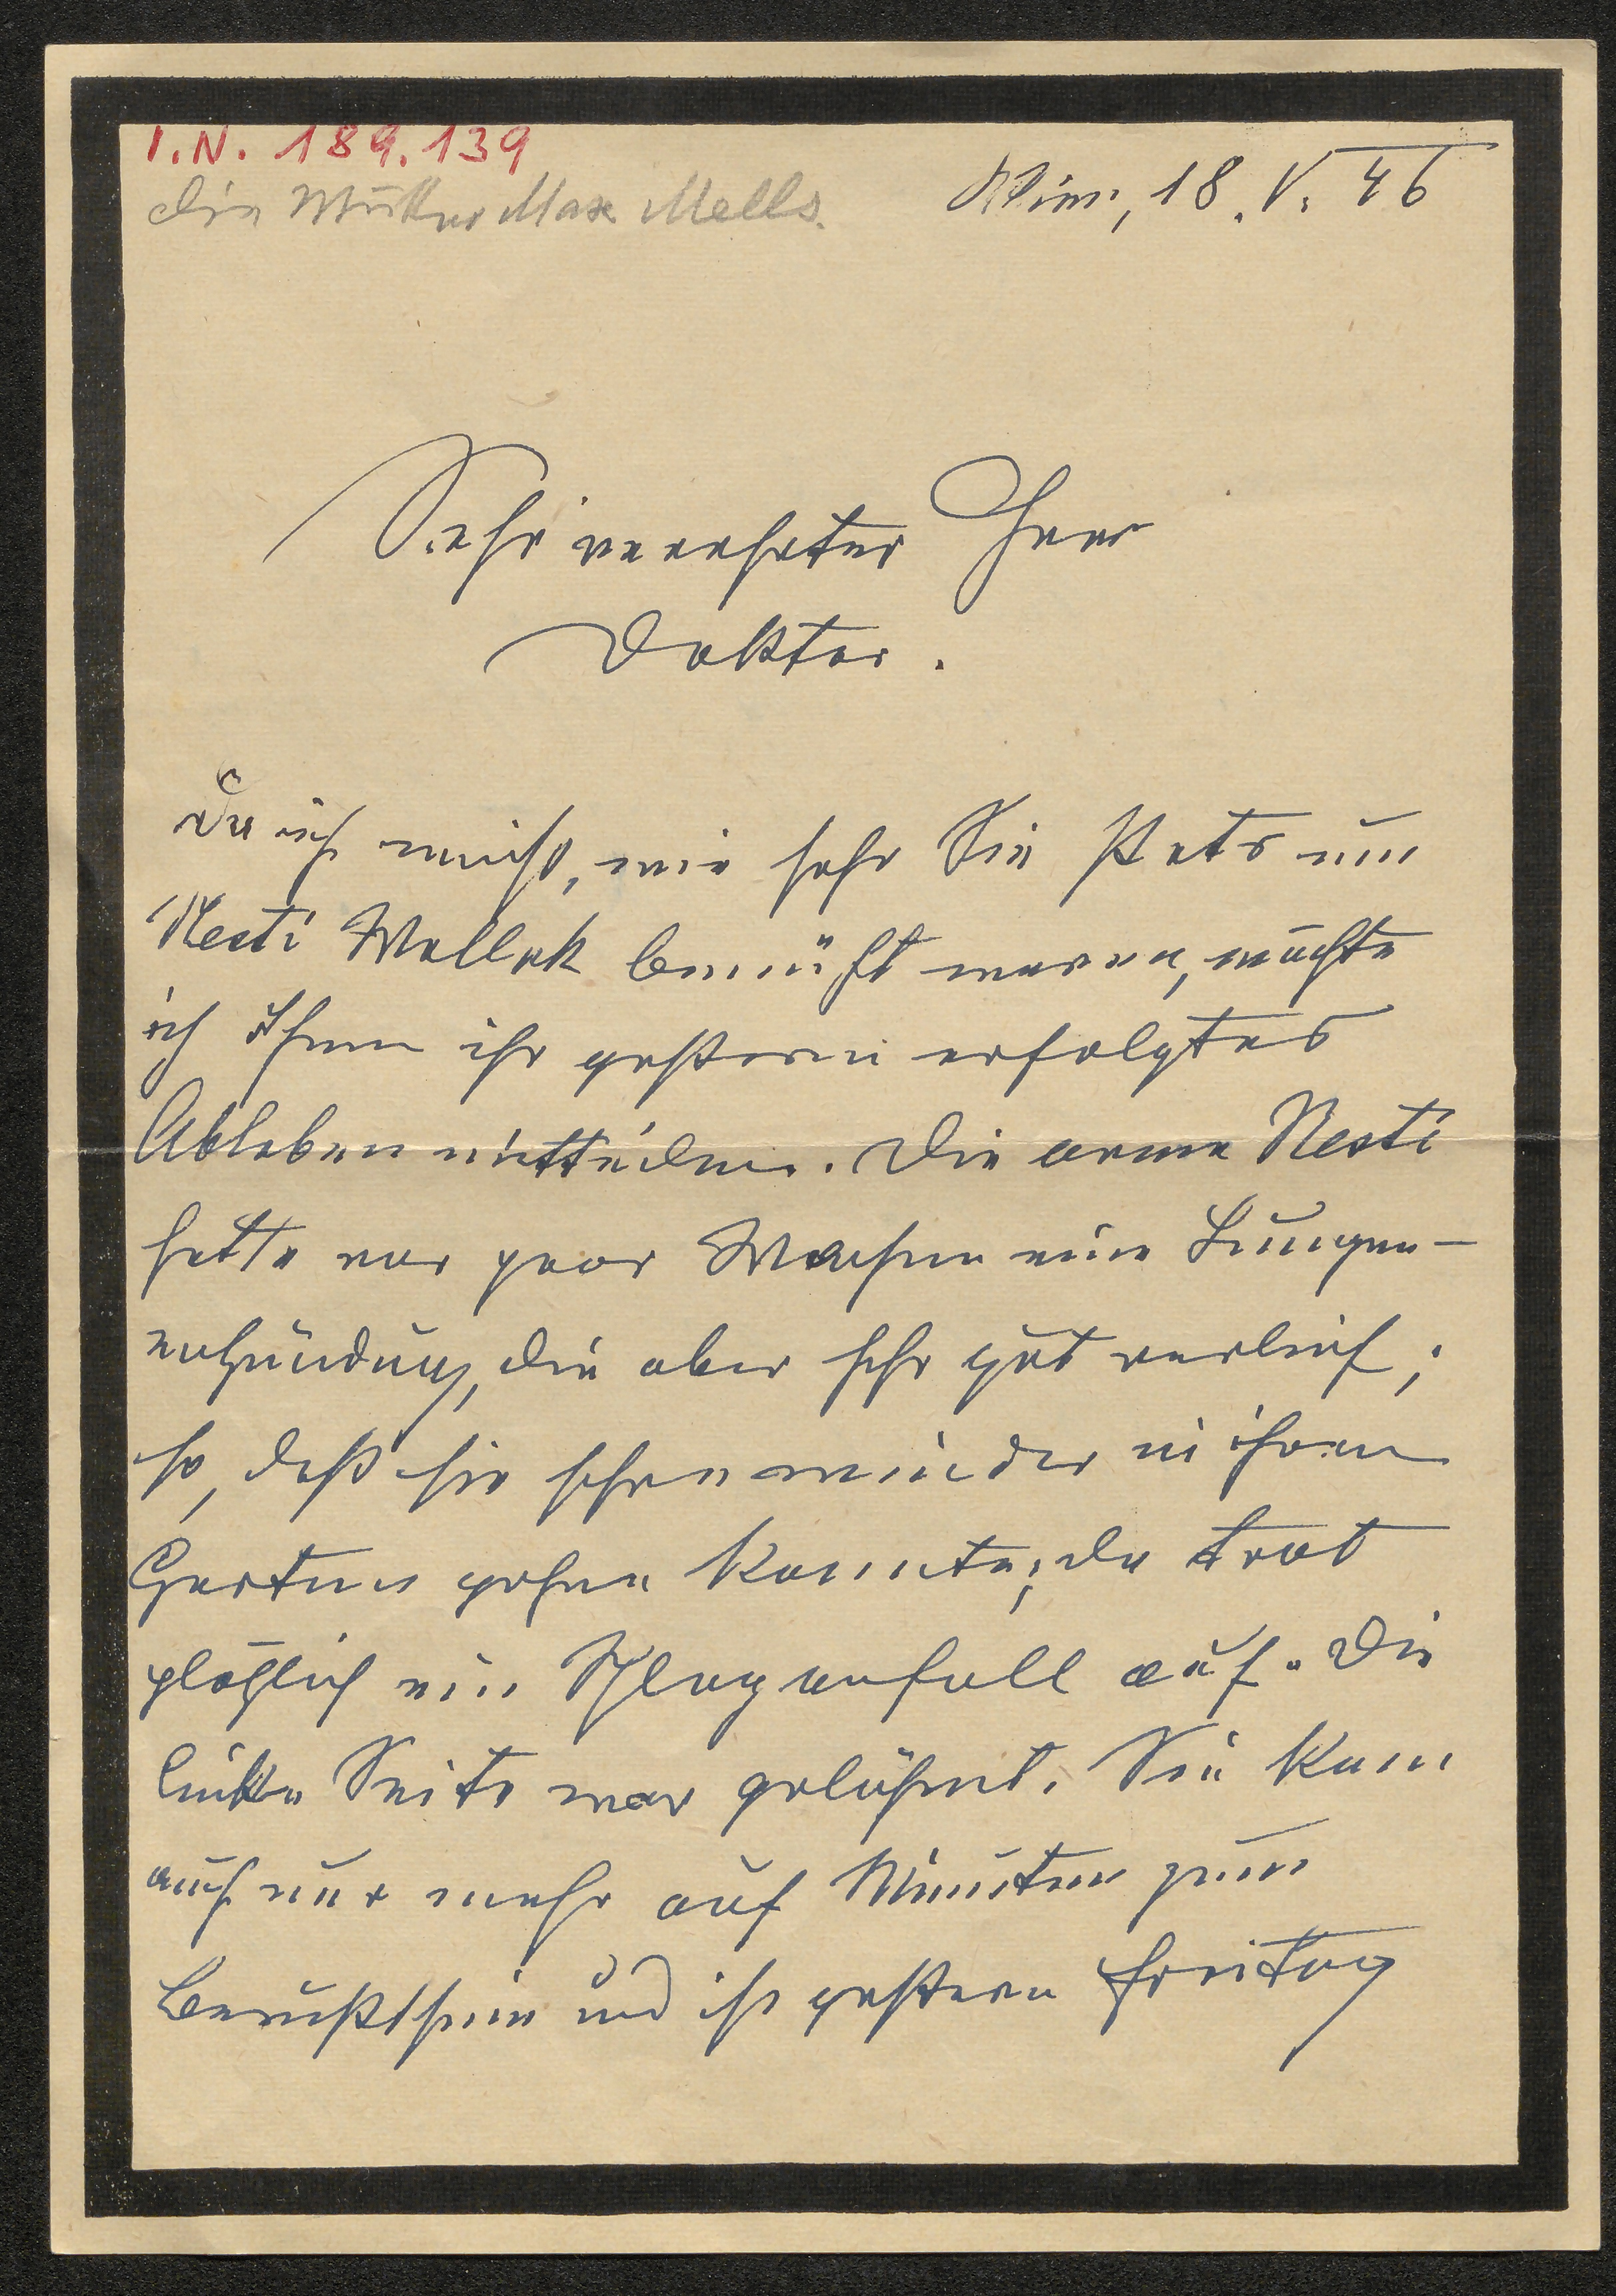 I.N. 189.139
die Mutter Max Mells.
Wien, 18. V. 46
Sehr verehrter Herr
Doktor.
Da ich weiß, wie sehr Sie stets um
Resti Wollek bemüht waren, möchte
ich Ihnen ihr gestern erfolgtes
Ableben mitteilen. Die arme Resti
hatte vor paar Wochen eine Lungen-
entzündung, die aber sehr gut verlief;
so, daß sie schon wieder in ihren
Garten gehen konnte; da trat
plötzlich ein Schlaganfall auf. Die
linke Seite war gelähmt. Sie kam
auch nur mehr auf Minuten zum
Bewußtsein und ist gestern Freitag